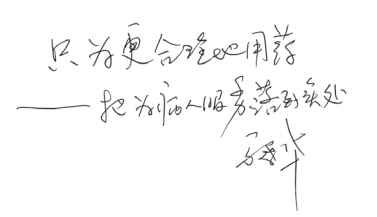 只为更合理地用药
——把为病人服务落到实处